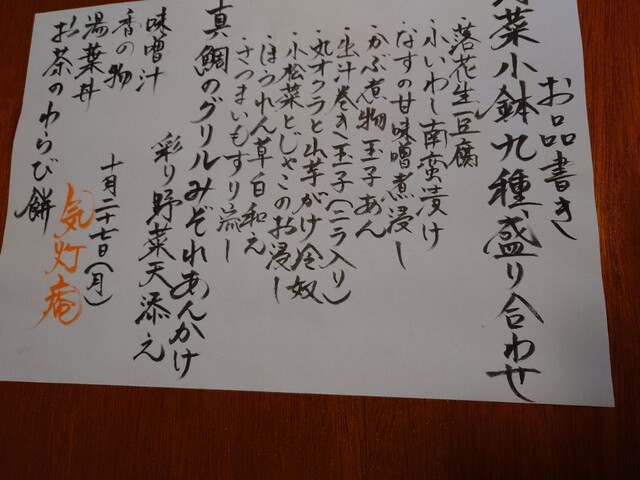 お品書き
野菜小鉢九種盛り合わせ
落花生豆腐
・小いわし南蛮漬け
・なすの甘味噌煮浸し
・かぶ煮物玉子あん
・出汁巻き玉子(ニラ入り)
・丸オクラと山芋がけ冷奴
・小松菜とじゃこのお浸し
・ほうれん草白和え
・さつまいもすり流し
真鯛のグリルみぞれあんかけ
彩り野菜天添え
味噌汁
香の物
湯葉丼
お茶のわらび餅
十月二十七日(月)
気灯庵